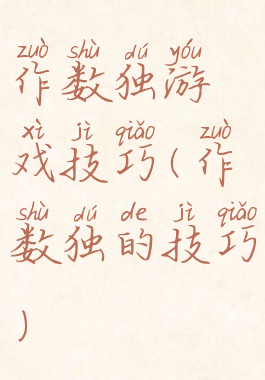 zuò shù dú yóu
作数独游
xì jì qiǎo zuò
戏技巧(作
shù dú de jì qiǎo
数独的技巧
)